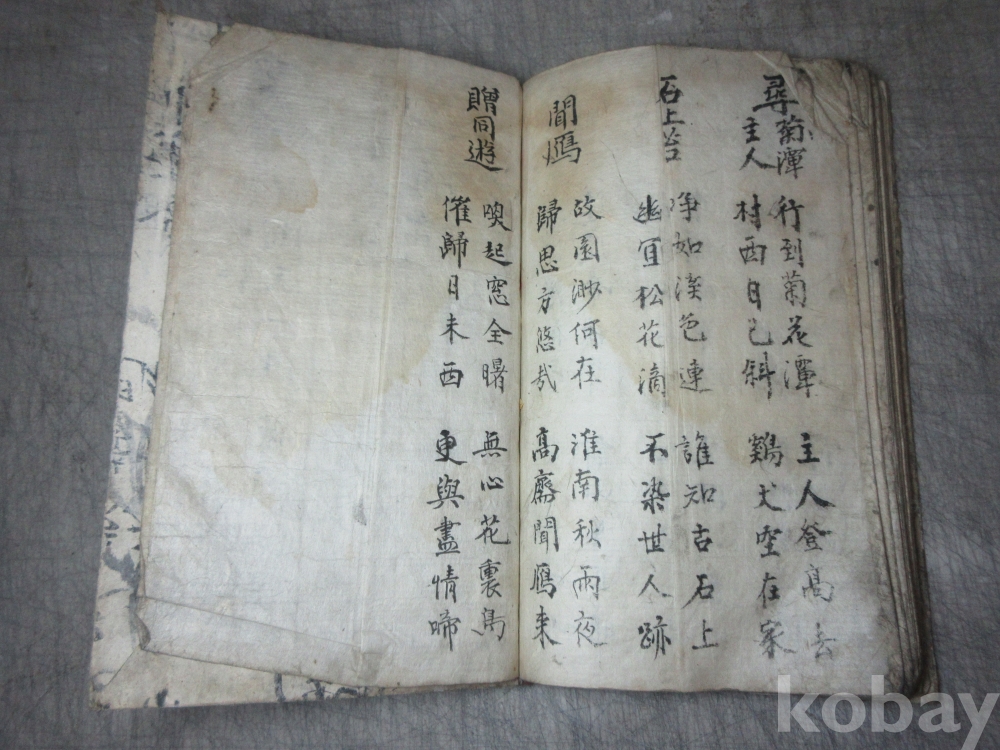 尋菊潭
主人
行到菊花潭 主人登高去
村西日已斜 鷄犬空在家
石上苔
净如渓色連 誰知古石上
幽宜松花滴 不染世人跡
聞鴈
故園渺何在 淮南秋雨夜
歸思方悠哉 高齋聞鴈来
贈同遊
喚起窓全曙 無心花裏鳥
催歸日未西 更與盡情啼
kobay